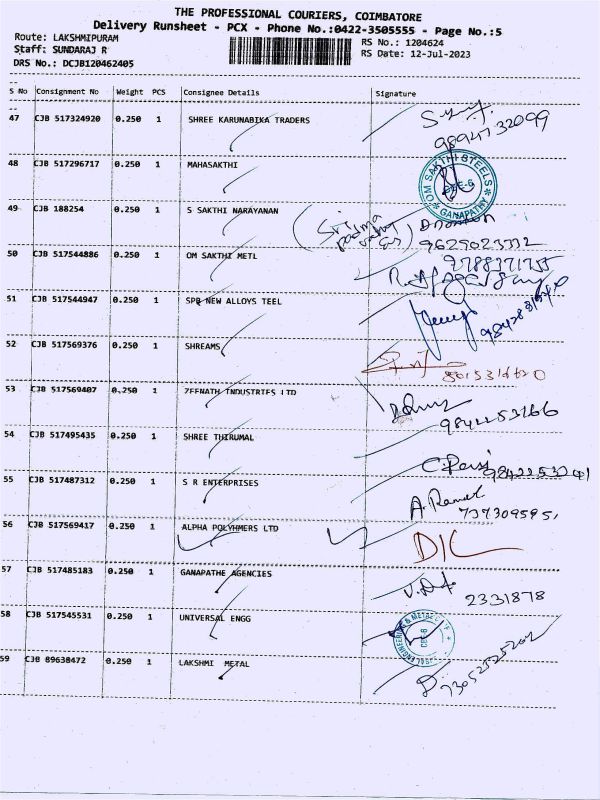 THE PROFESSIONAL COURIERS, COIMBATORE
Delivery Runsheet - PCX - Phone No.:0422-3505555 - Page No.:5
Route: LAKSHMIPURAM RS No.: 1204624
Staff: SUNDARAJ R RS Date: 12-Jul-2023
DRS No.: DCJB120462405
S No Consignment No Weight PCS Consignee Details Signature
47 CJB 517324920 0.250 1 SHREE KARUNABIKA TRADERS
9894732099
48 CJB 517296717 0.250 1 MAHASAKTHI
OM SAKTHI STEELS
GANAPATHY
49 CJB 188254 0.250 1 S SAKTHI NARAYANAN
50 CJB 517544886 0.250 1 OM SAKTHI METL
9788371755
51 CJB 517544947 0.250 1 SPB NEW ALLOYS TEEL
52 CJB 517569376 0.250 1 SHREAMS
53 CJB 517569407 0.250 1 ZEENATH INDUSTRIES LTD
9842253266
54 CJB 517495435 0.250 1 SHREE THIRUMAL
55 CJB 517487312 0.250 1 S R ENTERPRISES
56 CJB 517569417 0.250 1 ALPHA POLYHMERS LTD
DIC
57 CJB 517485183 0.250 1 GANAPATHE AGENCIES
2331878
58 CJB 517545531 0.250 1 UNIVERSAL ENGG
59 CJB 89638472 0.250 1 LAKSHMI METAL